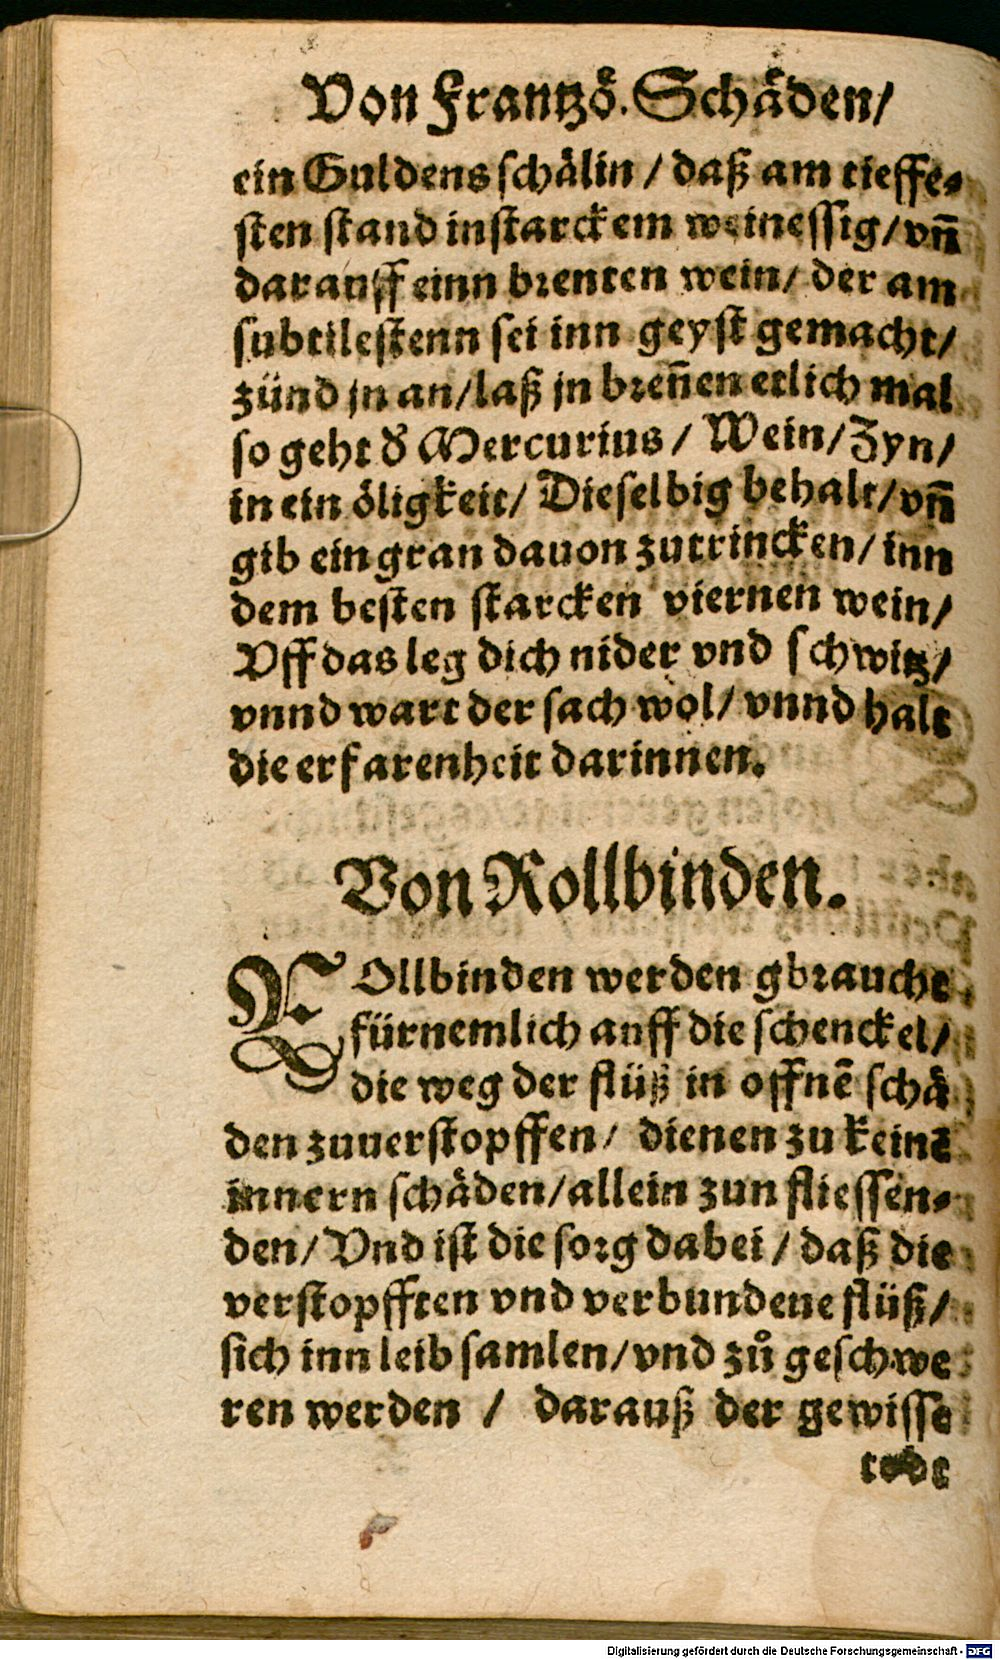 Von Frantzö. Schäden/
ein Guldens schälin / daß am tieffe⸗
sten stand in starckem weinessig/ vñ
darauff einn brenten wein/ der am
subtilestenn sei inn geyst gemacht/
zünd jn an/ laß jn breñen etlich mal
so geht d' Mercurius / Wein/ Zyn/
in ein öligkeit/ Dieselbig behalt/ vñ
gib ein gran dauon zutrincken/ inn
dem besten starcken viernen wein/
Vff das leg dich nider vnd schwitz/
vnnd wart der sach wol/ vnnd halt
die erfarenheit darinnen.
Von Rollbinden.
ROllbinden werden gbraucht
fürnemlich auff die schenckel/
die weg der flüß in offnē schä
den zuuerstopffen/ dienen zu keinē
innern schäden/ allein zun fliessen⸗
den/ Vnd ist die sorg dabei / daß die
verstopfften vnd verbundene flüß/
sich inn leib samlen/ vnd zů geschwe
ren werden / darauß der gewisse
todt
Digitalisierung gefördert durch die Deutsche Forschungsgemeinschaft - DFG